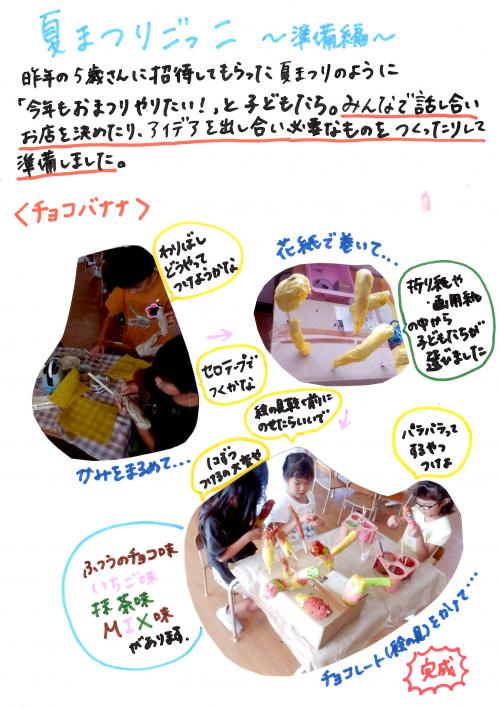 夏まつりごっこ ~準備編~
昨年の5歳さんに招待してもらった夏まつりのように
「今年もおまつりやりたい!」と子どもたち。みんなで話し合い
お店を決めたり、アイデアを出し合い必要なものをつくったりして
準備しました。
<チョコバナナ>
わりばし
どうやって
つけようかな
花紙で巻いて…
折り紙や
画用紙
の中から
子どもたちが
選びました
セロテープで
つくかな
かみをまるめて…
絵の具乾く前に
のせたらいいで
パラパラって
するやつ
つけよ
1コずつ
つけるの大変や
ふつうのチョコ味
いちご味
抹茶味
MIX味
があります。
チョコレート(絵の具)をかけて…
完成